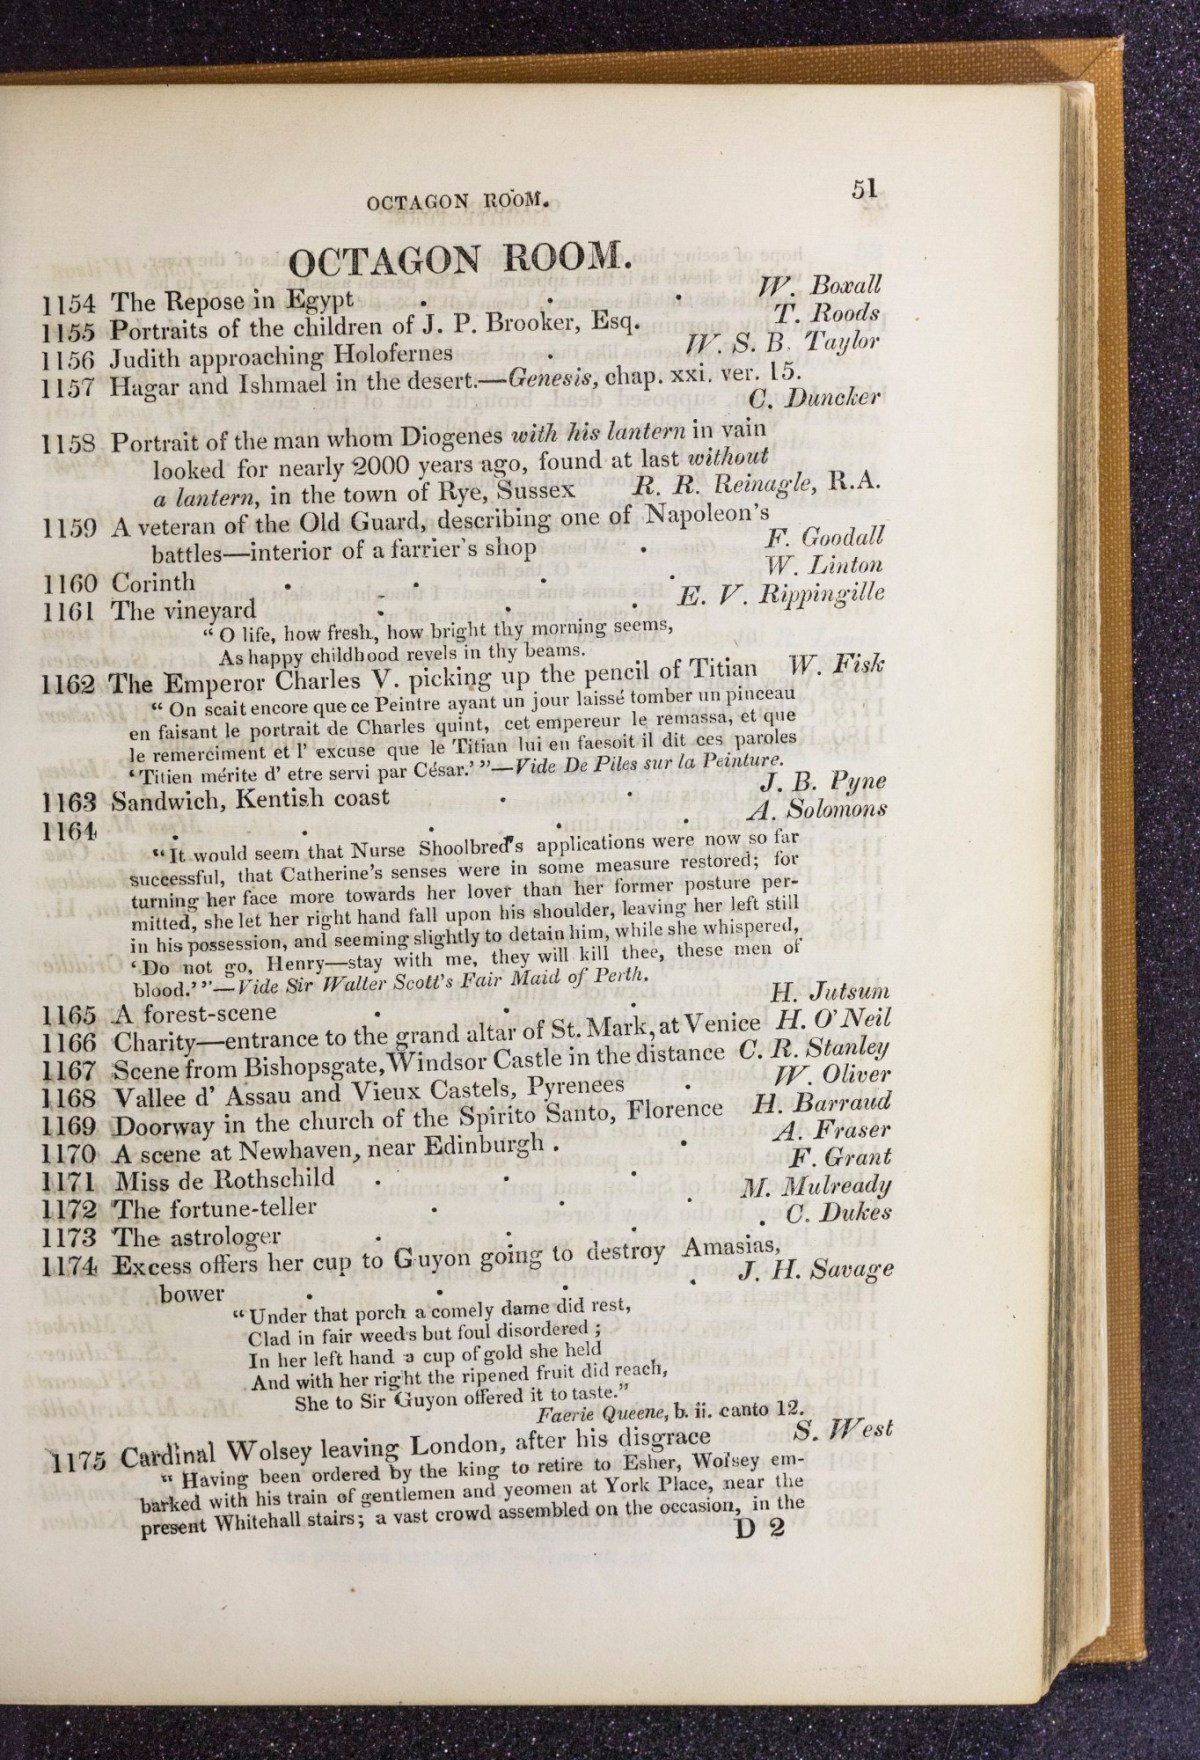 OCTAGON ROOM. 51
OCTAGON ROOM.
1154 The Repose in Egypt . . . W. Boxall
1155 Portraits of the children of J. P. Brooker, Esq. T. Roods
1156 Judith approaching Holofernes . W. S. B. Taylor
1157 Hagar and Ishmael in the desert.—Genesis, chap. xxi. ver. 15.
C. Duncker
1158 Portrait of the man whom Diogenes with his lantern in vain
looked for nearly 2000 years ago, found at last without
a lantern, in the town of Rye, Sussex R. R. Reinagle, R.A.
1159 A veteran of the Old Guard, describing one of Napoleon's
battles—interior of a farrier's shop . F. Goodall
1160 Corinth . . . . W. Linton
1161 The vineyard . . . E. V. Rippingille
“ O life, how fresh, how bright thy morning seems,
As happy childhood revels in thy beams.
1162 The Emperor Charles V. picking up the pencil of Titian W. Fisk
“ On scait encore que ce Peintre ayant un jour laissé tomber un pinceau
en faisant le portrait de Charles quint, cet empereur le remassa, et que
le remerciment et l' excuse que le Titian lui en faesoit il dit ces paroles
‘Titien mérite d' etre servi par César.’”—Vide De Piles sur la Peinture.
1163 Sandwich, Kentish coast . . J. B. Pyne
1164 . . . . . A. Solomons
“It would seem that Nurse Shoolbred's applications were now so far
successful, that Catherine's senses were in some measure restored; for
turning her face more towards her lover than her former posture per-
mitted, she let her right hand fall upon his shoulder, leaving her left still
in his possession, and seeming slightly to detain him, while she whispered,
‘Do not go, Henry—stay with me, they will kill thee, these men of
blood.’”—Vide Sir Walter Scott's Fair Maid of Perth.
1165 A forest-scene . . . H. Jutsum
1166 Charity—entrance to the grand altar of St. Mark, at Venice H. O'Neil
1167 Scene from Bishopsgate, Windsor Castle in the distance C. R. Stanley
1168 Vallee d' Assau and Vieux Castels, Pyrenees . W. Oliver
1169 Doorway in the church of the Spirito Santo, Florence H. Barraud
1170 A scene at Newhaven, near Edinburgh . . A. Fraser
1171 Miss de Rothschild . . . F. Grant
1172 The fortune-teller . . . M. Mulready
1173 The astrologer . . . . C. Dukes
1174 Excess offers her cup to Guyon going to destroy Amasias,
bower . . . . J. H. Savage
“ Under that porch a comely dame did rest,
Clad in fair weeds but foul disordered ;
In her left hand a cup of gold she held
And with her right the ripened fruit did reach,
She to Sir Guyon offered it to taste.”
Faerie Queene, b. ii. canto 12.
1175 Cardinal Wolsey leaving London, after his disgrace S. West
“ Having been ordered by the king to retire to Esher, Wolsey em-
barked with his train of gentlemen and yeomen at York Place, near the
present Whitehall stairs; a vast crowd assembled on the occasion, in the
D 2